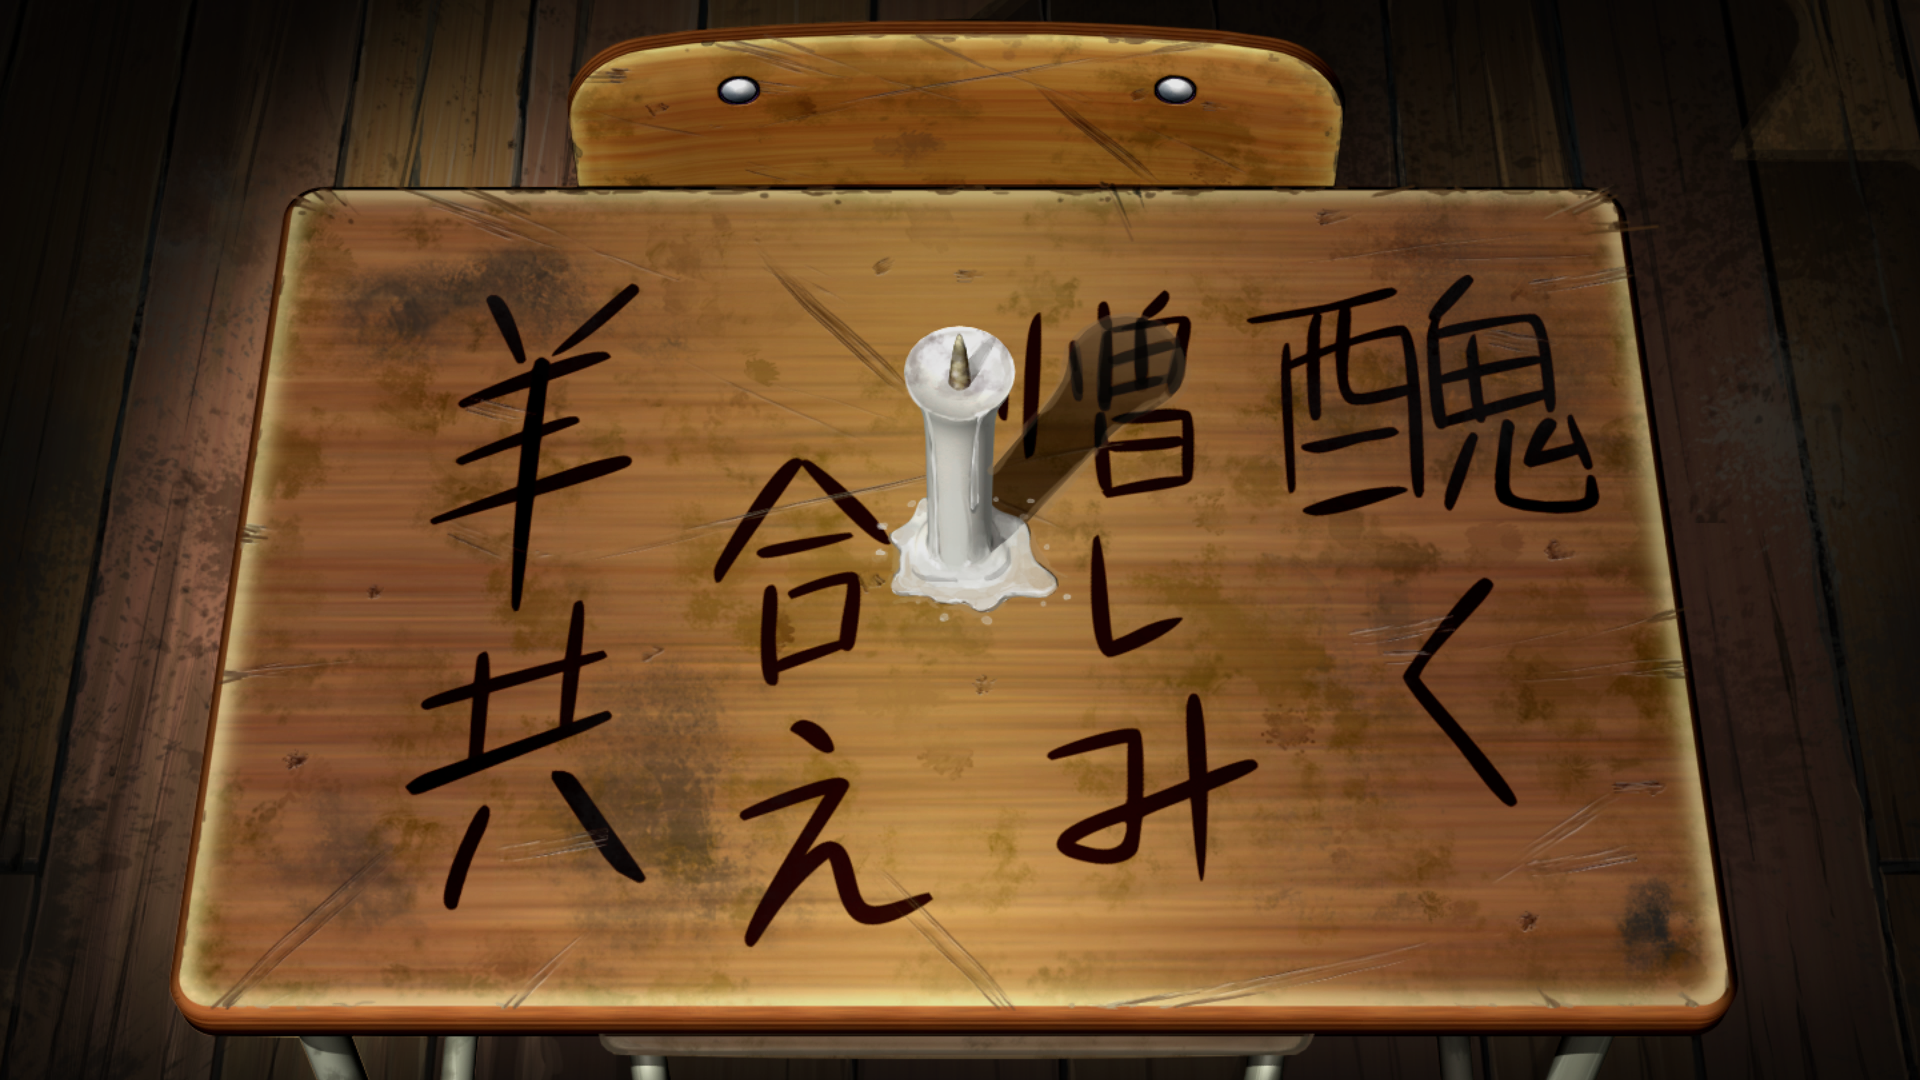 醜く
憎しみ
合え
羊共